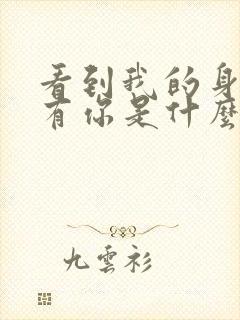 看到我的身
有你是什麼
九雲衫